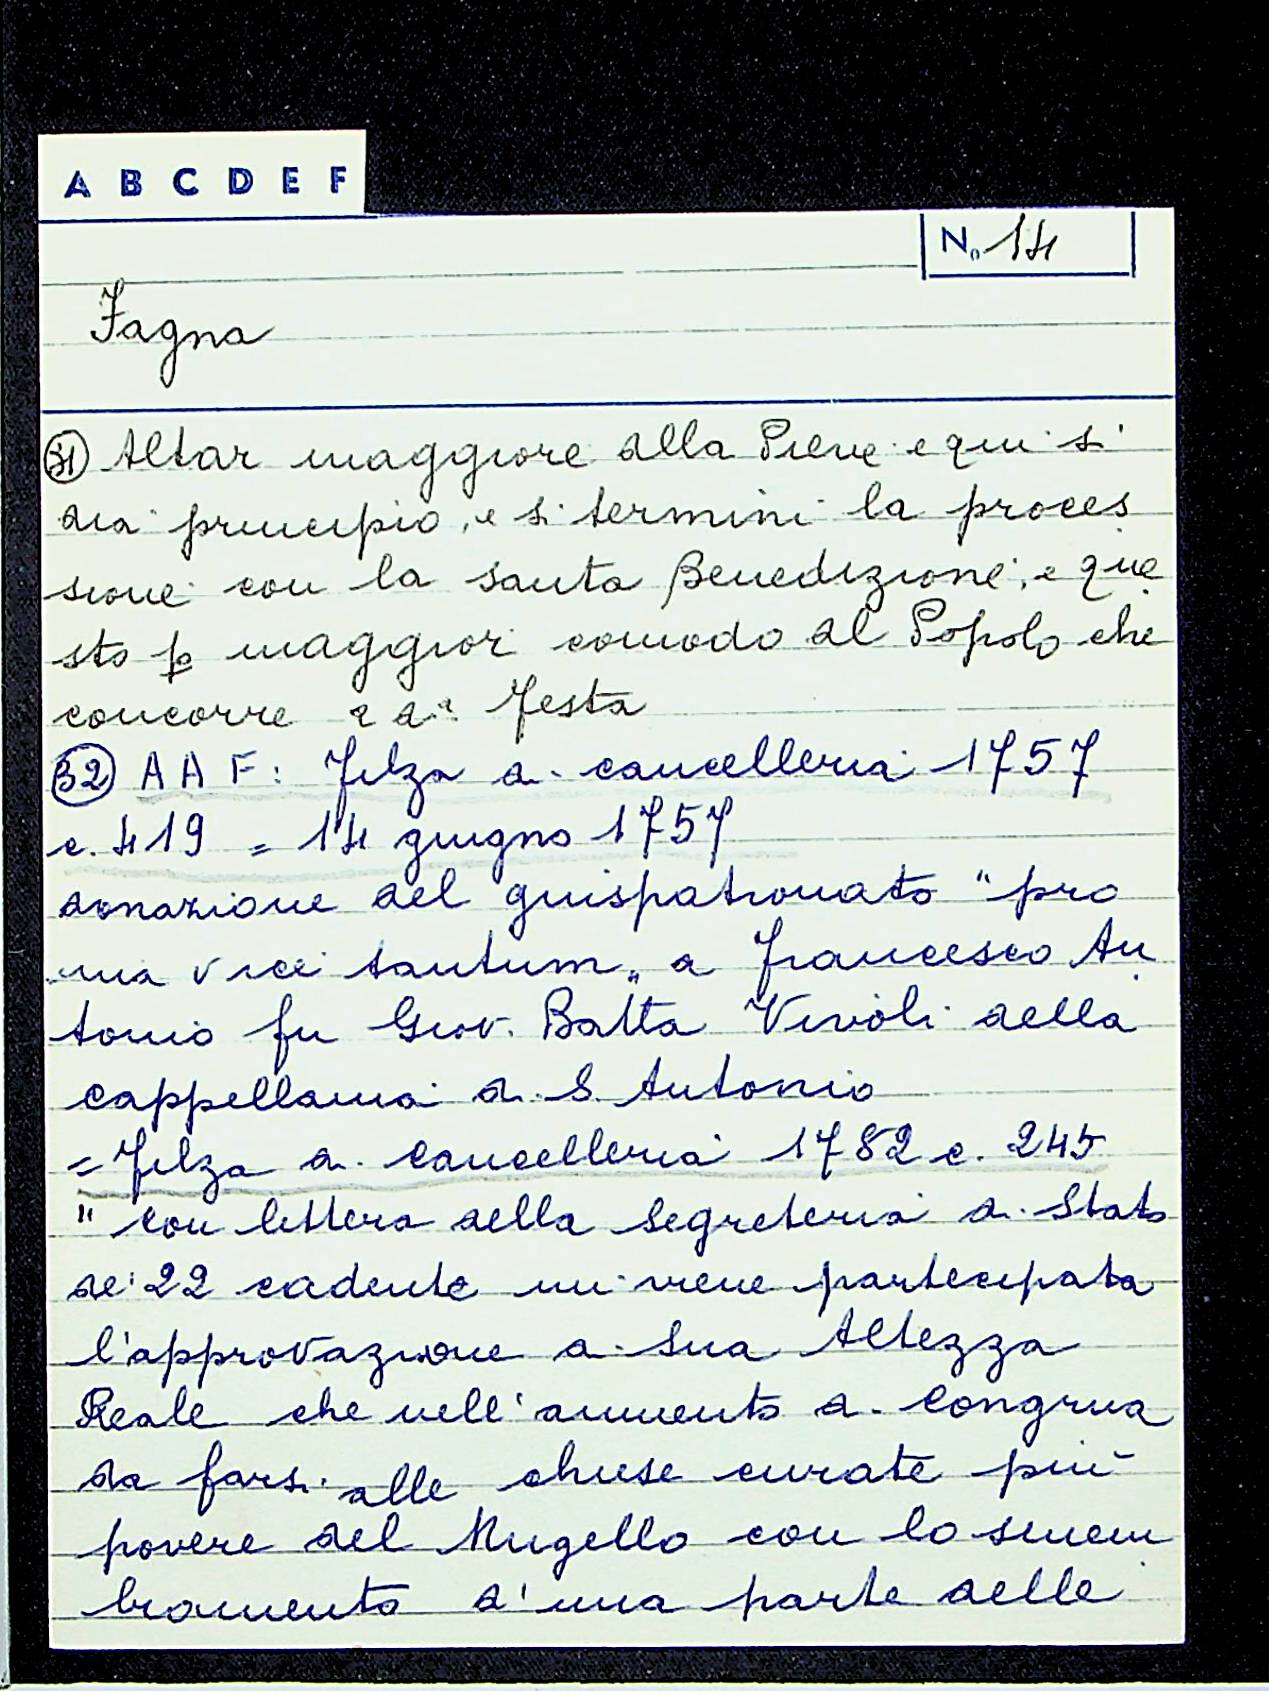 A B C D E F
No 14
Fagna
31 Altar maggiore alla Pieve e qui si
dia principio, e si termini la proces
sione con la santa Benedizione, e que
sto p maggior comodo al Popolo che
concorre a da Festa
32 A A F: Filza di cancelleria 1757
c. 419 = 14 giugno 1757
donazione del giuspatronato "pro
una vice tantum" a Francesco An
tonio fu Giov. Batta Vivoli della
cappellania di S. Antonio
= Filza di cancelleria 1782 c. 245
"con lettera della Segreteria di Stato
de' 22 cadente mi viene partecipata
l'approvazione di Sua Altezza
Reale che nell'aumento di congrua
da farsi alle chiese curate più
povere del Mugello con lo smem
bramento d'una parte delle